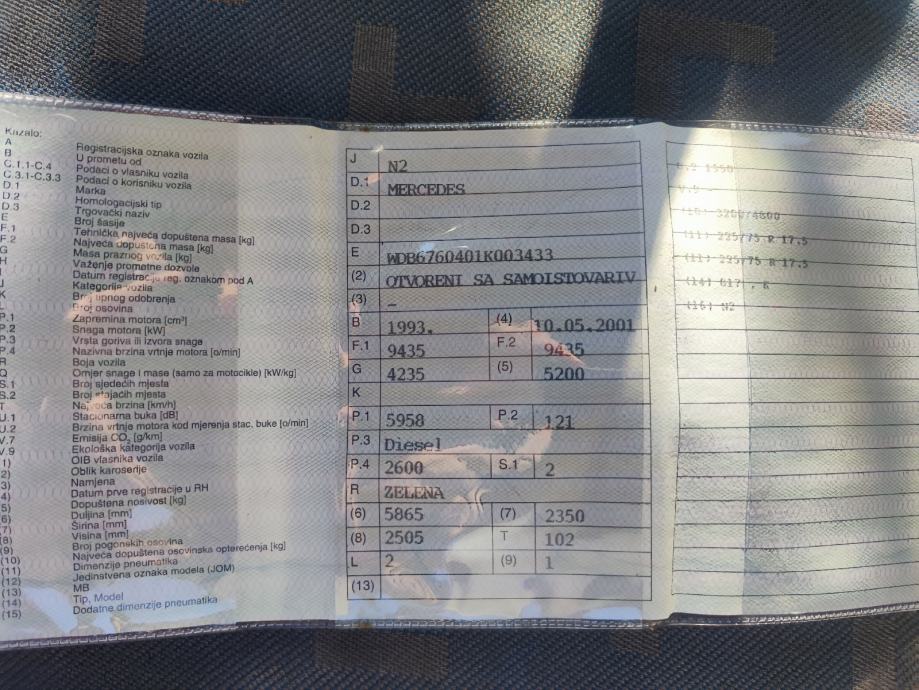 Kazalo:
A Registracijska oznaka vozila
B U prometu od
C.1.1-C.4 Podaci o vlasniku vozila
C.3.1-C.3.3 Podaci o korisniku vozila
D.1 Marka
D.2 Homologacijski tip
D.3 Trgovački naziv
E Broj šasije
F.1 Tehnička najveća dopuštena masa [kg]
F.2 Najveća dopuštena masa [kg]
G Masa praznog vozila [kg]
H Važenje prometne dozvole
I Datum registracije reg. oznakom pod A
J Kategorija vozila
K Broj tipnog odobrenja
L Broj osovina
P.1 Zapremina motora [cm³]
P.2 Snaga motora [kW]
P.3 Vrsta goriva ili izvora snage
P.4 Nazivna brzina vrtnje motora [o/min]
R Boja vozila
Q Omjer snage i mase (samo za motocikle) [kW/kg]
S.1 Broj sjedećih mjesta
S.2 Broj stajaćih mjesta
T Najveća brzina [km/h]
U.1 Stacionarna buka [dB]
U.2 Brzina vrtnje motora kod mjerenja stac. buke [o/min]
V.7 Emisija CO₂ [g/km]
V.9 Ekološka kategorija vozila
(1) OIB vlasnika vozila
(2) Oblik karoserije
(3) Namjena
(4) Datum prve registracije u RH
(5) Dopuštena nosivost [kg]
(6) Duljina [mm]
(7) Širina [mm]
(8) Visina [mm]
(9) Broj pogonskih osovina
(10) Najveća dopuštena osovinska opterećenja [kg]
(11) Dimenzije pneumatika
(12) Jedinstvena oznaka modela (JOM)
(13) MB
(14) Tip, Model
(15) Dodatne dimenzije pneumatika
J N2
D.1 MERCEDES
D.2
D.3
E WDB6760401K003433
(2) OTVORENI SA SAMOISTOVARIV
(3) –
B 1993. (4) 10.05.2001
F.1 9435 F.2 9435
G 4235 (5) 5200
K
P.1 5958 P.2 121
P.3 Diesel
P.4 2600 S.1 2
R ZELENA
(6) 5865 (7) 2350
(8) 2505 T 102
L 2 (9) 1
(13)
V.9 -
(10) 3200/4600
(11) 225/75 R 17.5
(11) 225/75 R 17.5
(14) 817
(16) N2